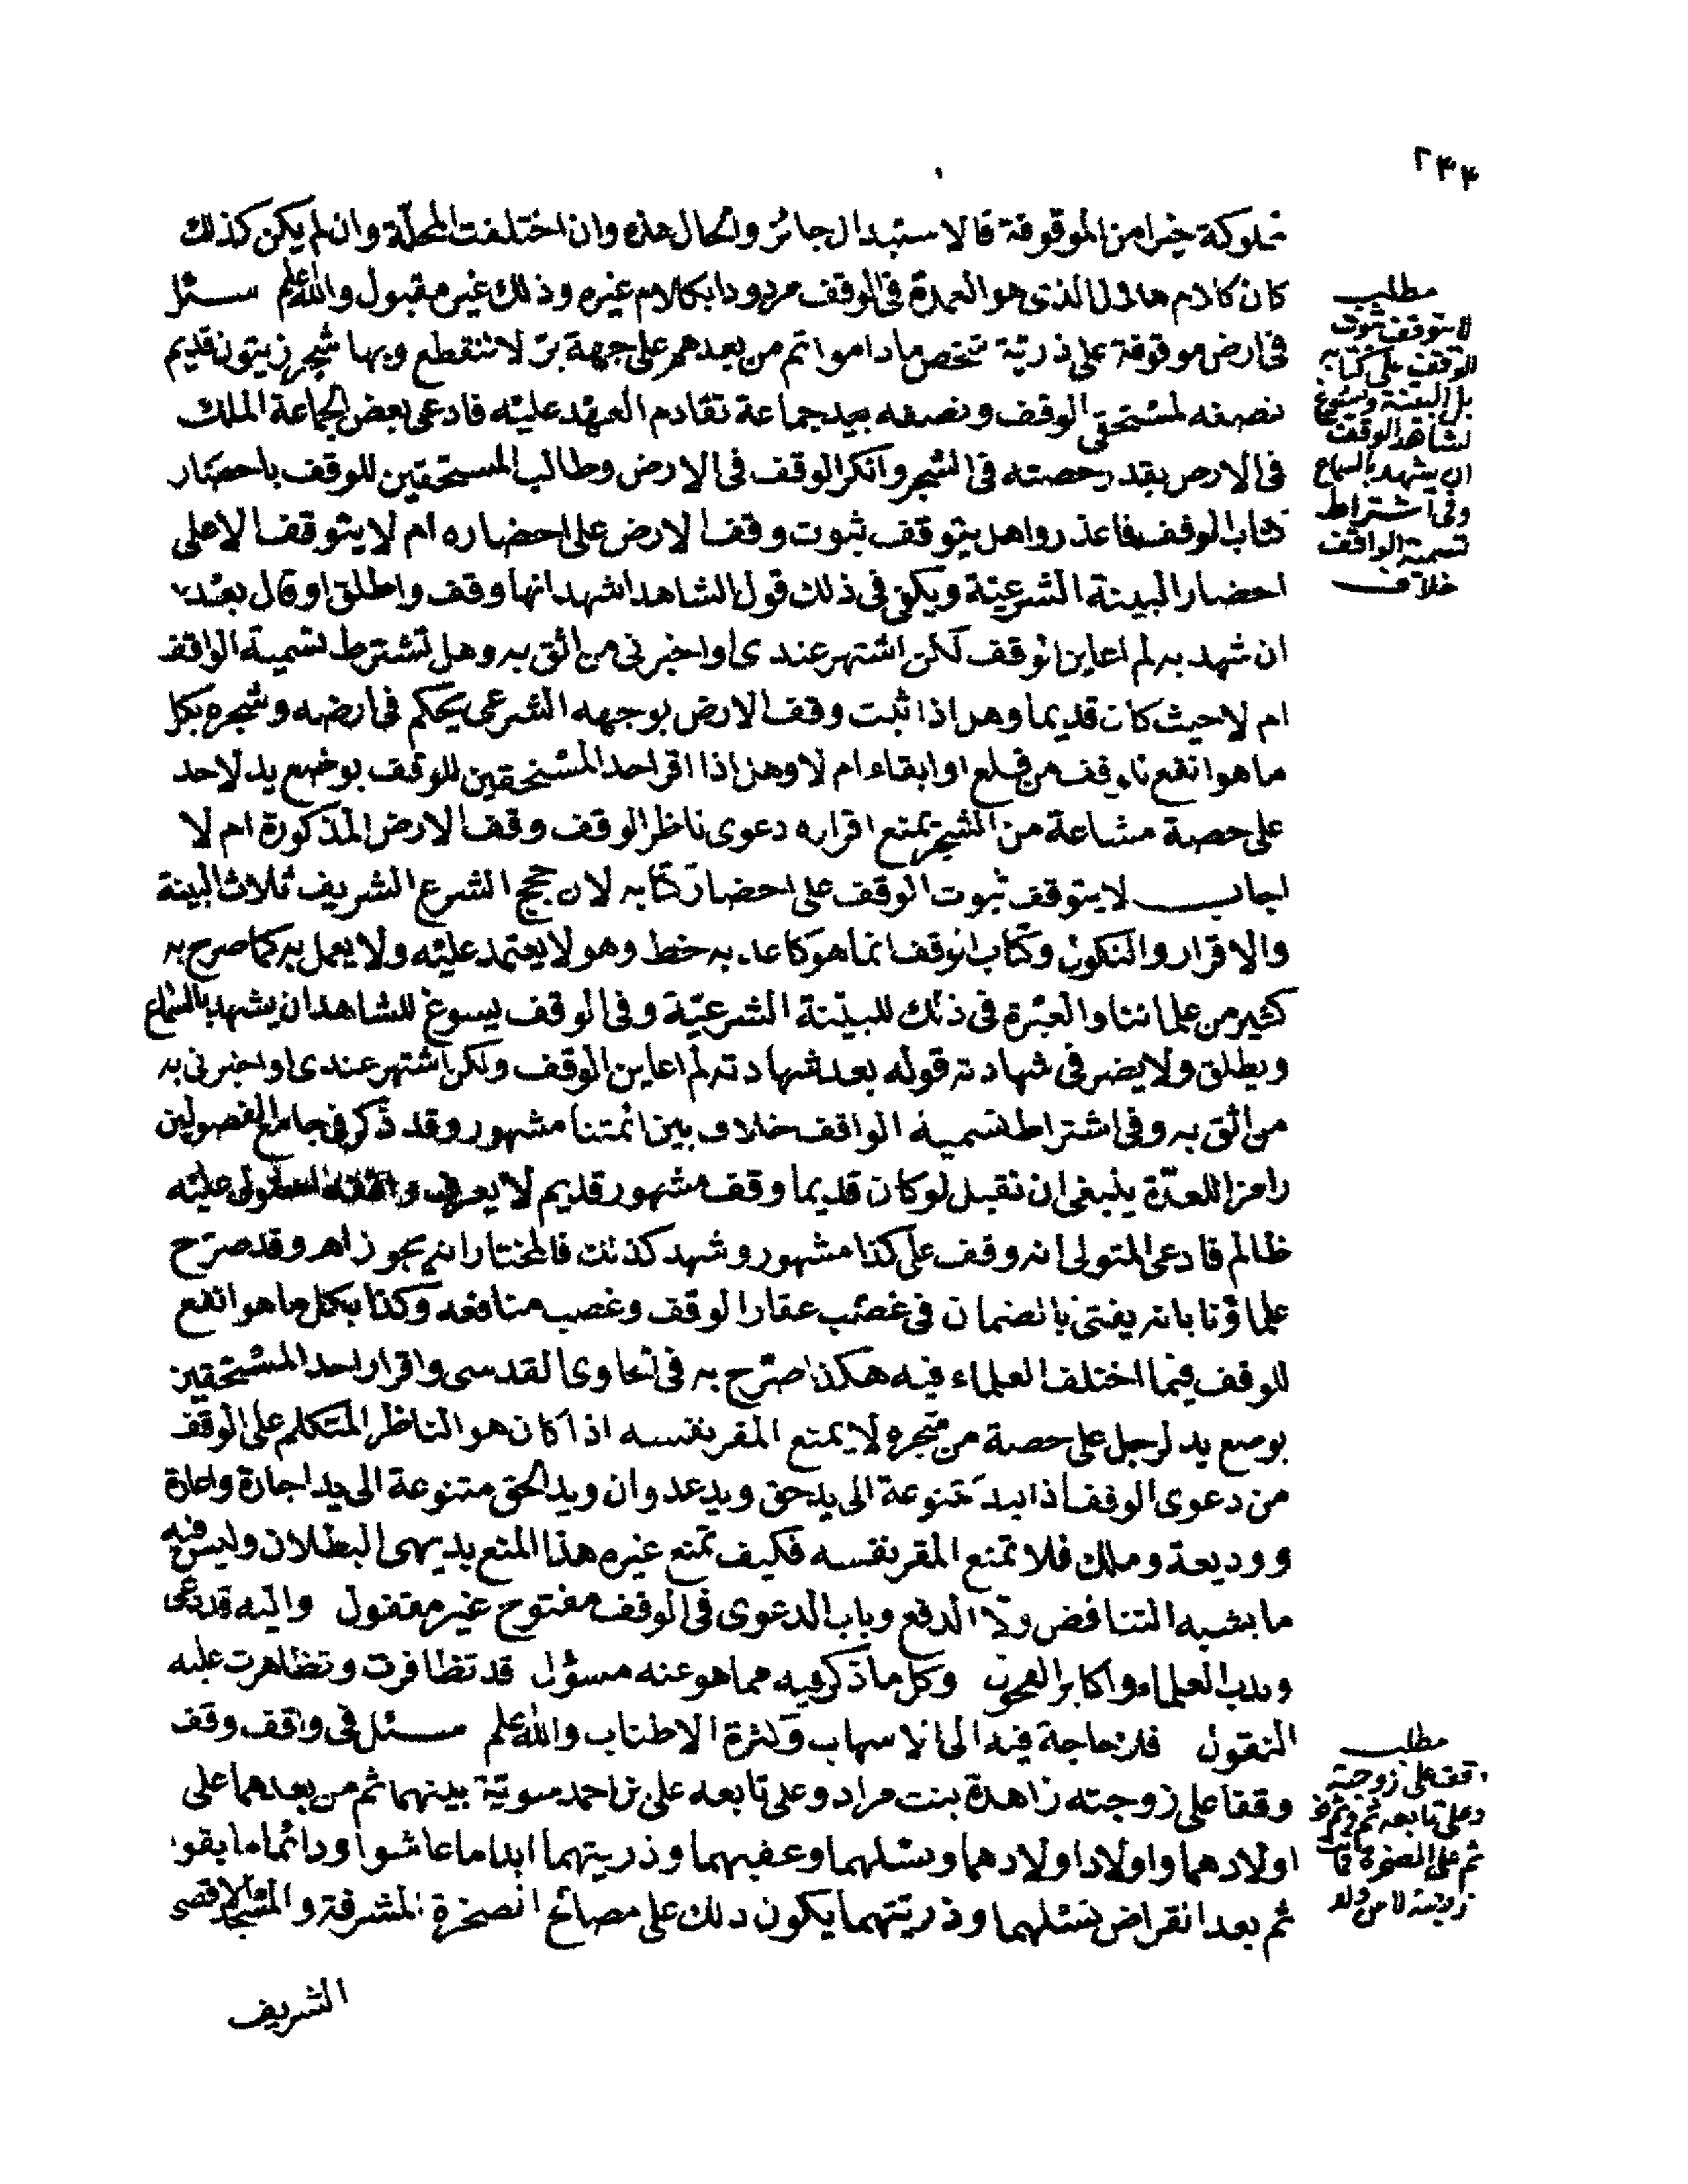 ٢٤٤
مملوكة خيرا من الموقوفة فالاستبدال جائز والحال هذه وان اختلفت المحلّة وان لم يكن كذلك
كان كلام هلال الذى هو العمدة فى الوقف مردودا بكلام غيره وذلك غير مقبول والله اعلم سئل
فى ارض موقوفة على ذريّة شخص ماداموا ثم من بعدهم على جهة برّ لا تنقطع وبها شجر زيتون قديم
نصفه لمستحقى الوقف ونصفه بيد جماعة تقادم العهد عليه فادعى بعض الجماعة الملك
فى الارض بقدر حصته فى الشجر وانكر الوقف فى الارض وطالب المستحقين للوقف باحضار
كتاب الوقف فاعذروا هل يتوقف ثبوت وقف الارض على احضاره ام لا يتوقف الا على
احضار البينة الشرعيّة ويكفى فى ذلك قول الشاهد اشهد انها وقف واطلق او قال بعد
ان شهد به لم اعاين الوقف لكن اشتهر عندى او اخبرنى من اثق به وهل تشترط تسمية الواقف
ام لا حيث كان قديما وهل اذا ثبت وقف الارض بوجهه الشرعى يحكم فى ارضه وشجره بكل
ما هو انفع للوقف من قلع او ابقاء ام لا وهل اذا اقر احد المستحقين للوقف بوضع يد لاحد
على حصة مشاعة من الشجر يمنع اقراره دعوى ناظر الوقف وقف الارض المذكورة ام لا
اجاب لا يتوقف ثبوت الوقف على احضار كتابه لان حجج الشرع الشريف ثلاث البينة
والاقرار والنكول وكتاب الوقف انما هو كاغد به خط وهو لا يعتمد عليه ولا يعمل به كما صرح به
كثير من علمائنا والعبرة فى ذلك للبيّنة الشرعيّة وفى الوقف يسوغ للشاهد ان يشهد بالسماع
ويطلق ولا يضر فى شهادته قوله بعد شهادته لم اعاين الوقف ولكن اشتهر عندى او اخبرنى به
من اثق به وفى اشتراط تسمية الواقف خلاف بين ائمتنا مشهور وقد ذكر فى جامع الفصولين
رامزا للعدّة ينبغى ان تقبل لو كان قديما وقف مشهور قديم لا يعرف واقفه استولى عليه
ظالم فادعى المتولى انه وقف على كذا مشهور وشهد كذلك فالمختار انه يجوز اهـ وقد صرّح
علماؤنا بانه يفتى بالضمان فى غصب عقار الوقف وغصب منافعه وكذا بكل ما هو انفع
للوقف فيما اختلف العلماء فيه هكذا صرّح به فى الحاوى القدسى واقرار احد المستحقين
بوضع يد لرجل على حصة من شجره لا يمنع المقر نفسه اذا كان هو الناظر المتكلم على الوقف
من دعوى الوقف اذ اليد متنوعة الى يد حق ويد عدوان ويد الحق متنوعة الى يد اجارة واعارة
ووديعة وملك فلا تمنع المقر نفسه فكيف تمنع غيره هذا المنع بديهى البطلان وليس فيه
ما يشبه التناقض ولا الدفع وباب الدعوى فى الوقف مفتوح غير مقفول واليه قد دعى
وندب العلماء واكابر الفحول وكل ما ذكر فيه مما هو عنه مسؤل قد تظافرت وتظاهرت عليه
النقول فلا حاجة فيه الى الاسهاب وكثرة الاطناب والله اعلم سئل فى واقف وقف
وقفا على زوجته زاهدة بنت مراد وعلى تابعه على بن احمد سويّة بينهما ثم من بعدهما على
اولادهما واولاد اولادهما ونسلهما وعقبهما وذريتهما ابدا ما عاشوا ودائما ما بقوا
ثم بعد انقراض نسلهما وذريتهما يكون ذلك على مصالح الصخرة المشرفة والمسجد الاقصى
الشريف
مطلب
لا يتوقف ثبوت
الوقف على كتابه
بل البينة ويسوغ
لشاهد الوقف
ان يشهد بالسماع
وفى اشتراط
تسمية الواقف
خلاف
مطلب
وقف على زوجته
وعلى تابعه ثم
ثم على الصخرة